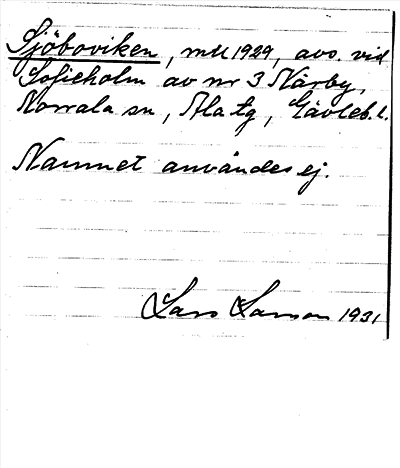 Sjöboviken, mtl 1929, avs. vid
Sofieholm av nr 3 Närby,
Norrala sn, Ala tg, Gävleb. l.
Namnet användes ej.
Lars Larson 1931